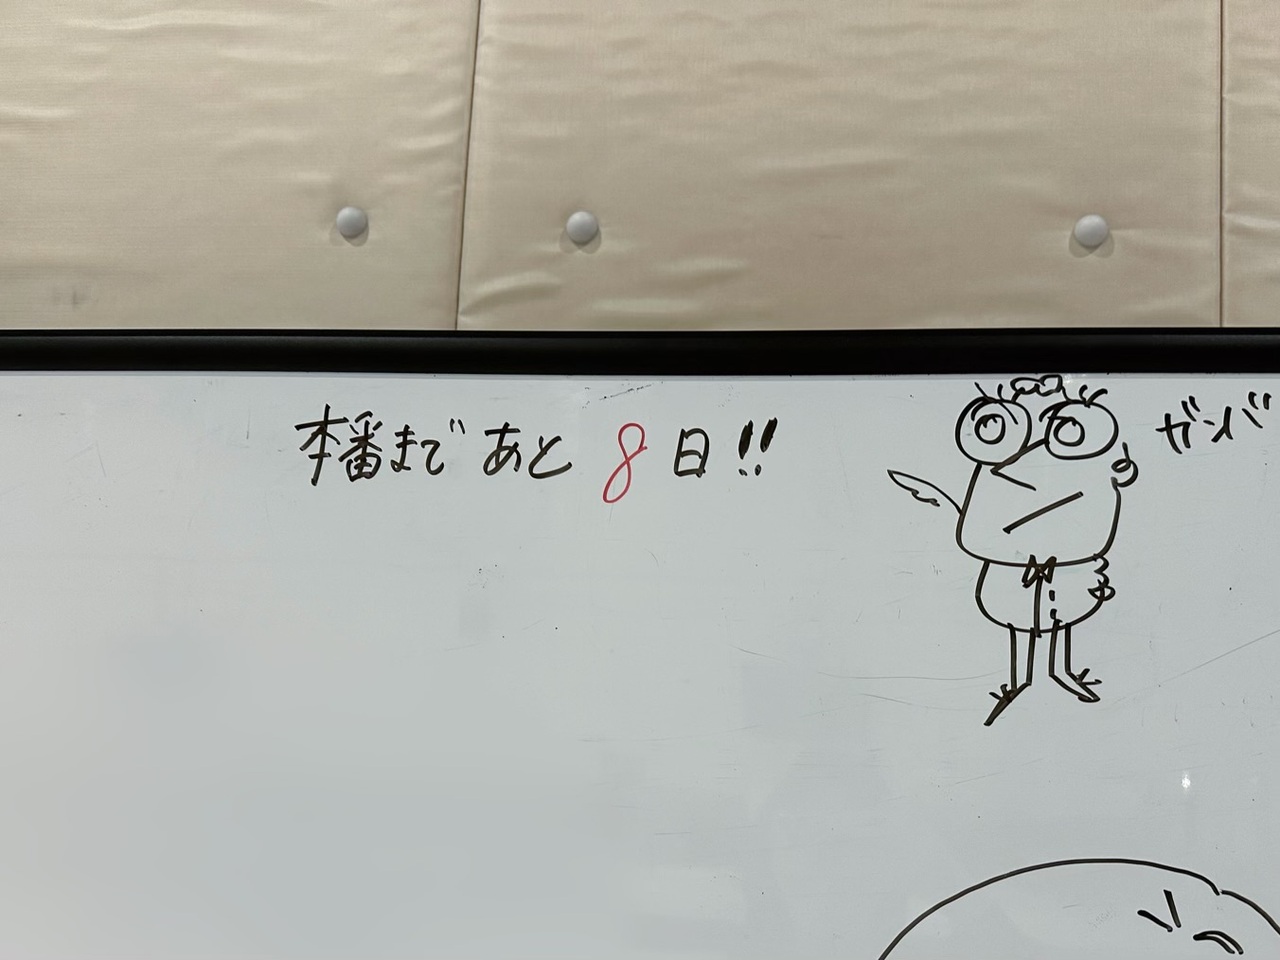 本番まであと8日!!
ガンバ